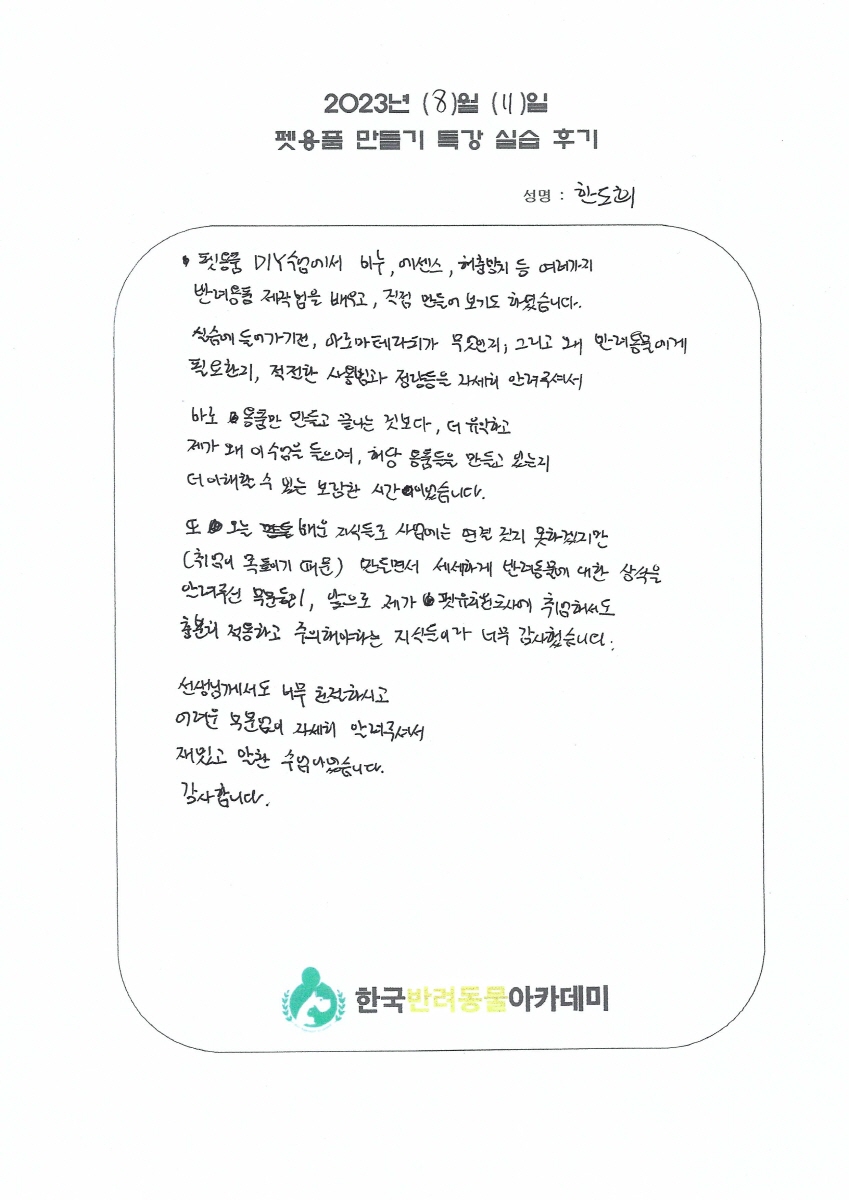 2023년 (8)월 (11)일
펫용품 만들기 특강 실습 후기
성명 : 한도희
펫용품 DIY수업에서 비누, 에센스, 해충방지 등 여러가지
반려용품 제작법을 배우고, 직접 만들어 보기도 하였습니다.
실습에 들어가기전, 아로마테라피가 무엇인지, 그리고 왜 반려동물에게
필요한지, 적절한 사용법과 정량등을 자세히 알려주셔서
바로 용품만 만들고 끝나는 것보다, 더 유익하고
제가 왜 이 수업을 들으며, 해당 용품들을 만들고 있는지
더 이해할 수 있는 보람찬 시간이었습니다.
또 오늘 배운 지식들로 사업에는 연결 짓지 못하겠지만
(취업이 목적이기 때문) 만들면서 세세하게 반려동물에 대한 상식을
알려주신 부분들이, 앞으로 제가 취업해서도
충분히 적용하고 주의해야하는 지식들이라 너무 감사했습니다.
선생님께서도 너무 친절하시고
어려운 부분없이 자세히 알려주셔서
재밌고 알찬 수업이었습니다.
감사합니다.
한국반려동물아카데미